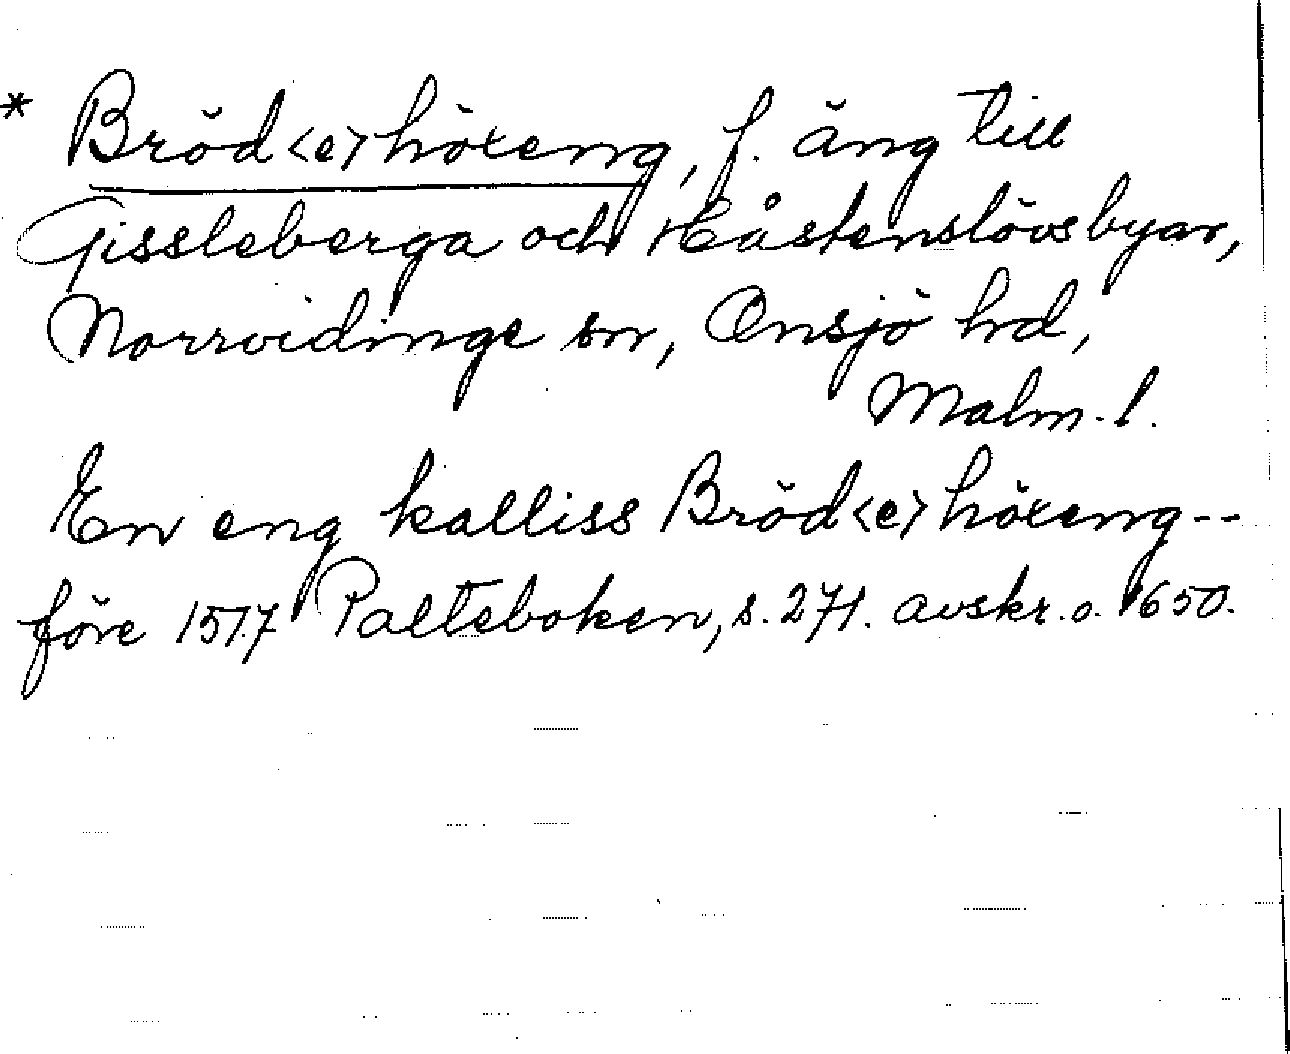 * Bröd<e>höxeng, f. äng till
Gissleberga och Håstenslövs byar,
Norrvidinge sn, Onsjö hd,
Malm. l.
En eng kalliss Bröd<e>höxeng--
före 1517 Palteboken, s. 271. avskr. o. 1650.